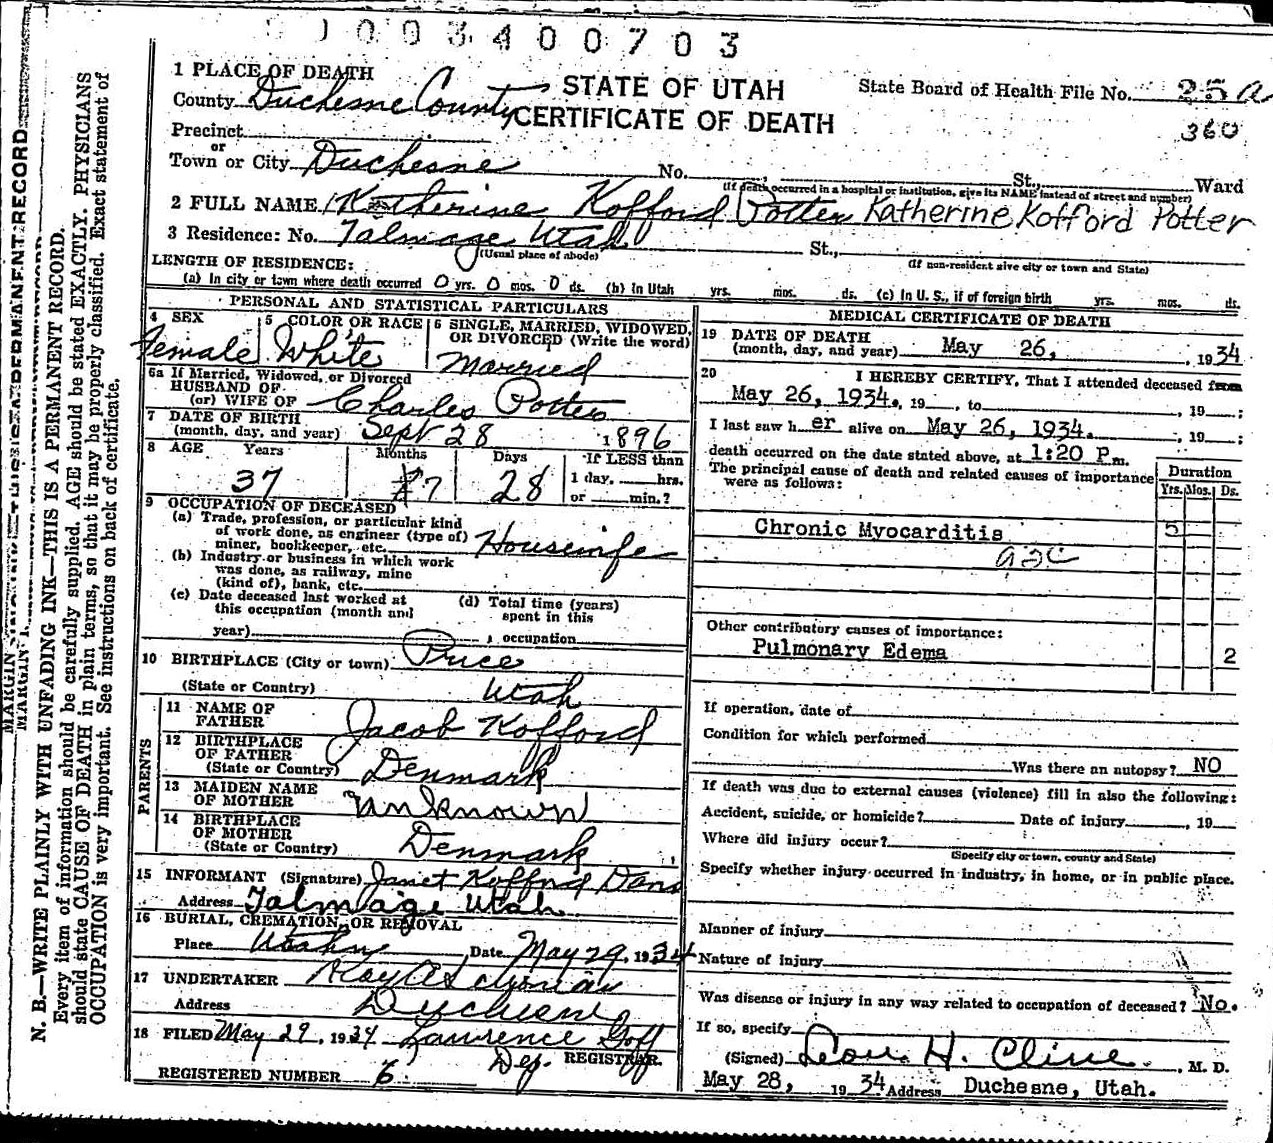 1003400703
STATE OF UTAH
CERTIFICATE OF DEATH
State Board of Health File No. 25 a
360
1 PLACE OF DEATH
County Duchesne County
Precinct
or
Town or City Duchesne No. , St., Ward
(If death occurred in a hospital or institution, give its NAME instead of street and number)
2 FULL NAME Katherine Kofford Potter Katherine Kofford Potter
3 Residence: No. Talmage Utah St.,
(Usual place of abode) (If non-resident give city or town and State)
LENGTH OF RESIDENCE:
(a) In city or town where death occurred 0 yrs. 0 mos. 0 ds. (b) In Utah yrs. mos. ds. (c) In U. S., if of foreign birth yrs. mos. ds.
PERSONAL AND STATISTICAL PARTICULARS
4 SEX 5 COLOR OR RACE 6 SINGLE, MARRIED, WIDOWED, OR DIVORCED (Write the word)
Female White Married
6a If Married, Widowed, or Divorced
HUSBAND OF
(or) WIFE OF Charles Potter
7 DATE OF BIRTH
(month, day, and year) Sept 28 1896
8 AGE Years Months Days If LESS than
37 7 28 1 day, hrs.
or min.?
9 OCCUPATION OF DECEASED
(a) Trade, profession, or particular kind
of work done, as engineer (type of)
miner, bookkeeper, etc. Housewife
(b) Industry or business in which work
was done, as railway, mine
(kind of), bank, etc.
(c) Date deceased last worked at (d) Total time (years)
this occupation (month and spent in this
year) , occupation
10 BIRTHPLACE (City or town) Price
(State or Country) Utah
PARENTS
11 NAME OF
FATHER Jacob Kofford
12 BIRTHPLACE
OF FATHER
(State or Country) Denmark
13 MAIDEN NAME
OF MOTHER unknown
14 BIRTHPLACE
OF MOTHER
(State or Country) Denmark
15 INFORMANT (Signature) Janet Kofford
Address Talmage Utah
16 BURIAL, CREMATION, OR REMOVAL
Place Utahn Date May 29, 1934
17 UNDERTAKER
Address Duchesne
18 FILED May 29, 1934 Lawrence Goff
Dep. REGISTRAR.
REGISTERED NUMBER 6
MEDICAL CERTIFICATE OF DEATH
19 DATE OF DEATH
(month, day, and year) May 26, , 1934
20 I HEREBY CERTIFY, That I attended deceased from
May 26, 1934. , 19 , to , 19 ;
I last saw h er alive on May 26, 1934. , 19 ;
death occurred on the date stated above, at 1:20 P m.
The principal cause of death and related causes of importance
were as follows:
Duration
Yrs. Mos. Ds.
Chronic Myocarditis 5
Other contributory causes of importance:
Pulmonary Edema 2
If operation, date of
Condition for which performed
Was there an autopsy? NO
If death was due to external causes (violence) fill in also the following:
Accident, suicide, or homicide? Date of injury , 19
Where did injury occur?
(Specify city or town, county and State)
Specify whether injury occurred in industry, in home, or in public place.
Manner of injury
Nature of injury
Was disease or injury in any way related to occupation of deceased? No.
If so, specify
(Signed) H. Cline , M. D.
May 28, 1934 Address Duchesne, Utah.
N. B.—WRITE PLAINLY WITH UNFADING INK—THIS IS A PERMANENT RECORD.
Every item of information should be carefully supplied. AGE should be stated EXACTLY. PHYSICIANS
should state CAUSE OF DEATH in plain terms, so that it may be properly classified. Exact statement of
OCCUPATION is very important. See instructions on back of certificate.